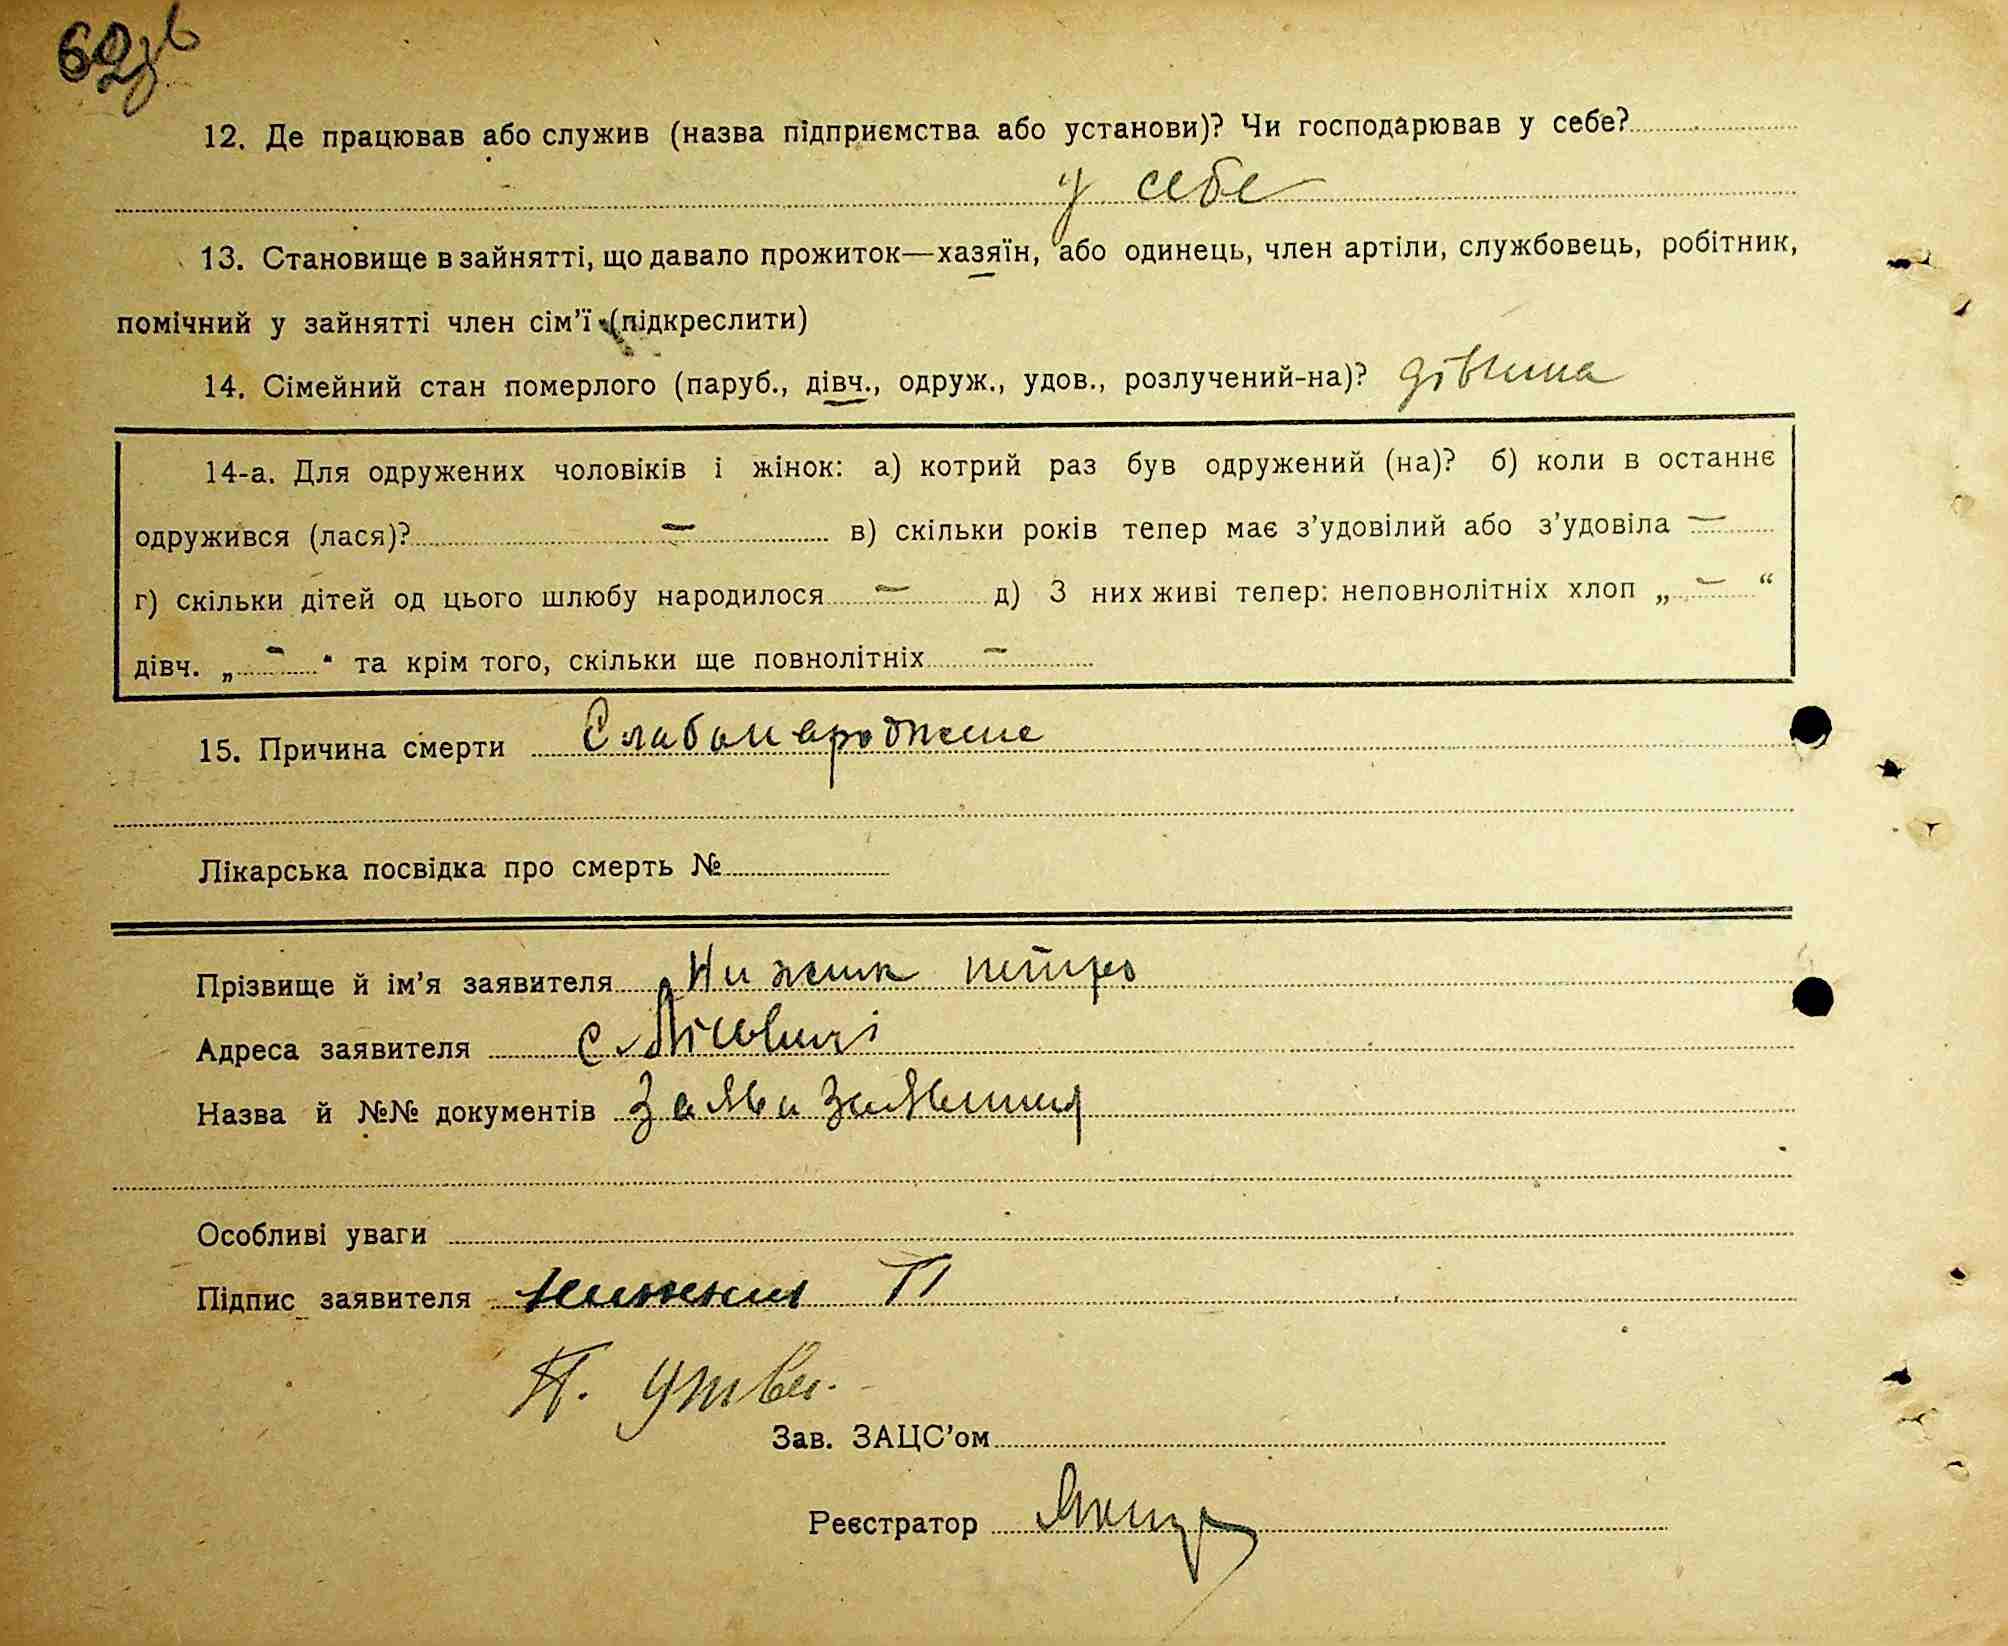 62зв
12. Де працював або служив (назва підприємства або установи)? Чи господарював у себе?
у себе
13. Становище в зайнятті, що давало прожиток—хазяїн, або одинець, член артіли, службовець, робітник,
помічний у зайнятті член сім'ї (підкреслити)
14. Сімейний стан померлого (паруб., дівч., одруж., удов., розлучений-на)? дівчина
14-а. Для одружених чоловіків і жінок: а) котрий раз був одружений (на)? б) коли в останнє
одружився (лася)? — в) скільки років тепер має з'удовілий або з'удовіла —
г) скільки дітей од цього шлюбу народилося — д) З них живі тепер: неповнолітніх хлоп „ — “
дівч. „ — “ та крім того, скільки ще повнолітніх —
15. Причина смерти Слабонароджене
Лікарська посвідка про смерть №
Прізвище й ім'я заявителя Нижник петро
Адреса заявителя с. Лісовичі
Назва й №№ документів Заява заявника
Особливі уваги
Підпис заявителя нижник П
Зав. ЗАЦС'ом
Реєстратор